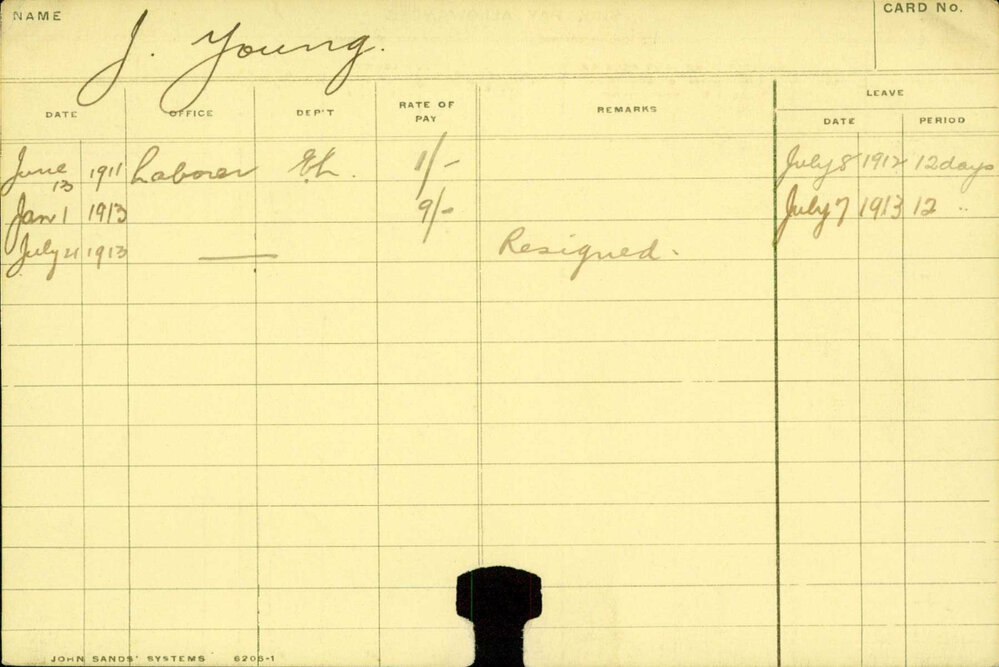 NAME J. Young. CARD No.
LEAVE
DATE OFFICE DEP'T RATE OF PAY REMARKS DATE PERIOD
June 13 1911 Laborer 1/- July 8 1912 12 days
Jan 1 1913 9/- July 7 1913 12 "
July 21 1913 — Resigned.
JOHN SANDS' SYSTEMS 6206-1